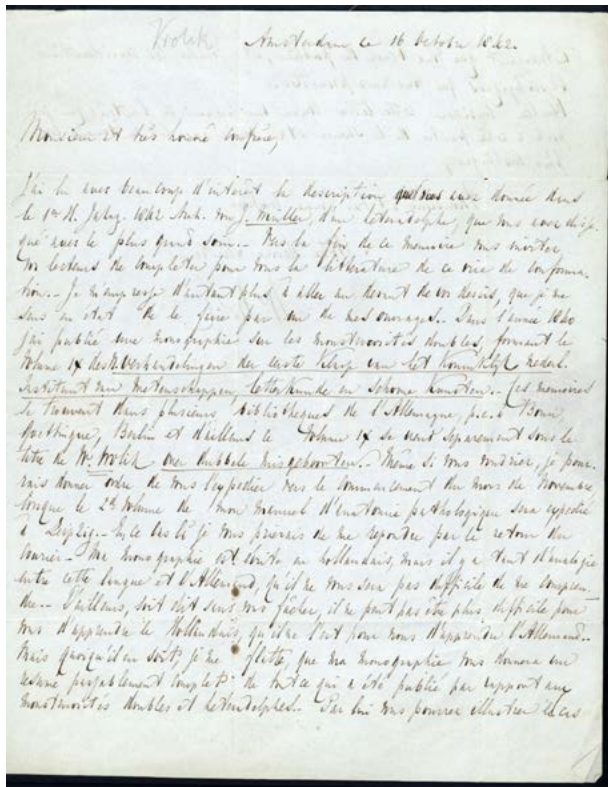 Vrolik
Amsterdam ce 16 Octobre 1842.
Monsieur et très honoré Confrère,
J'ai lu avec beaucoup d'intérêt la description que vous avez donnée dans
le 1er H. Jahrg. 1842 Arch. von J. Müller, d'un que vous avez dissé-
qué avec le plus grand soin.. Vers la fin de ce memoire vous invitez
vos lecteurs de completer pour vous la littérature de ce vice de conforma-
tion.. Je m'empresse d'autant plus à aller au devant de vos desirs, que je me
suis en état de le faire par un de mes ouvrages.. Dans l'année 1840
j'ai publié une monographie sur les monstruosités doubles, formant le
Volume IX des N. Verhandelingen der eerste Klasse van het Koninklijk nederl.
Instituut van Wetenschappen, Letterkunde en Schoone Kunsten.. Ces memoires
se trouvent dans plusieurs bibliothèques de l'Allemagne, p.e. à Bonn
Goettingue, Berlin et d'ailleurs le Volume IX se vend séparement sous le
titre de W. Vrolik over dubbele misgeboorten.. Même si vous voudriez, je pour-
rais donner ordre de vous l'expedier vers le commencement du mois de Novembre,
lorsque le 2d Volume de mon manuel d'anatomie pathologique sera expedié
à Leipzig.. En ce cas là je vous prierais de me repondre par le retour du
courier.. Ma monographie est écrite en hollandais, mais il y a tant d'analogie
entre cette langue et l'Allemand, qu'il ne vous sera pas difficile de me compren-
dre.. D'ailleurs, soit dit sans vous facher, il ne peut pas être plus difficile pour
vous d'apprendre le Hollandais, qu'il ne l'est pour nous d'apprendre l'Allemand..
Mais quoiqu'il en soit, je me flatte, que ma monographie vous donnera un
resumé passablement complet de tout ce qui a été publié par rapport aux
monstruosités doubles et Par lui vous pourrez illustrer le cas